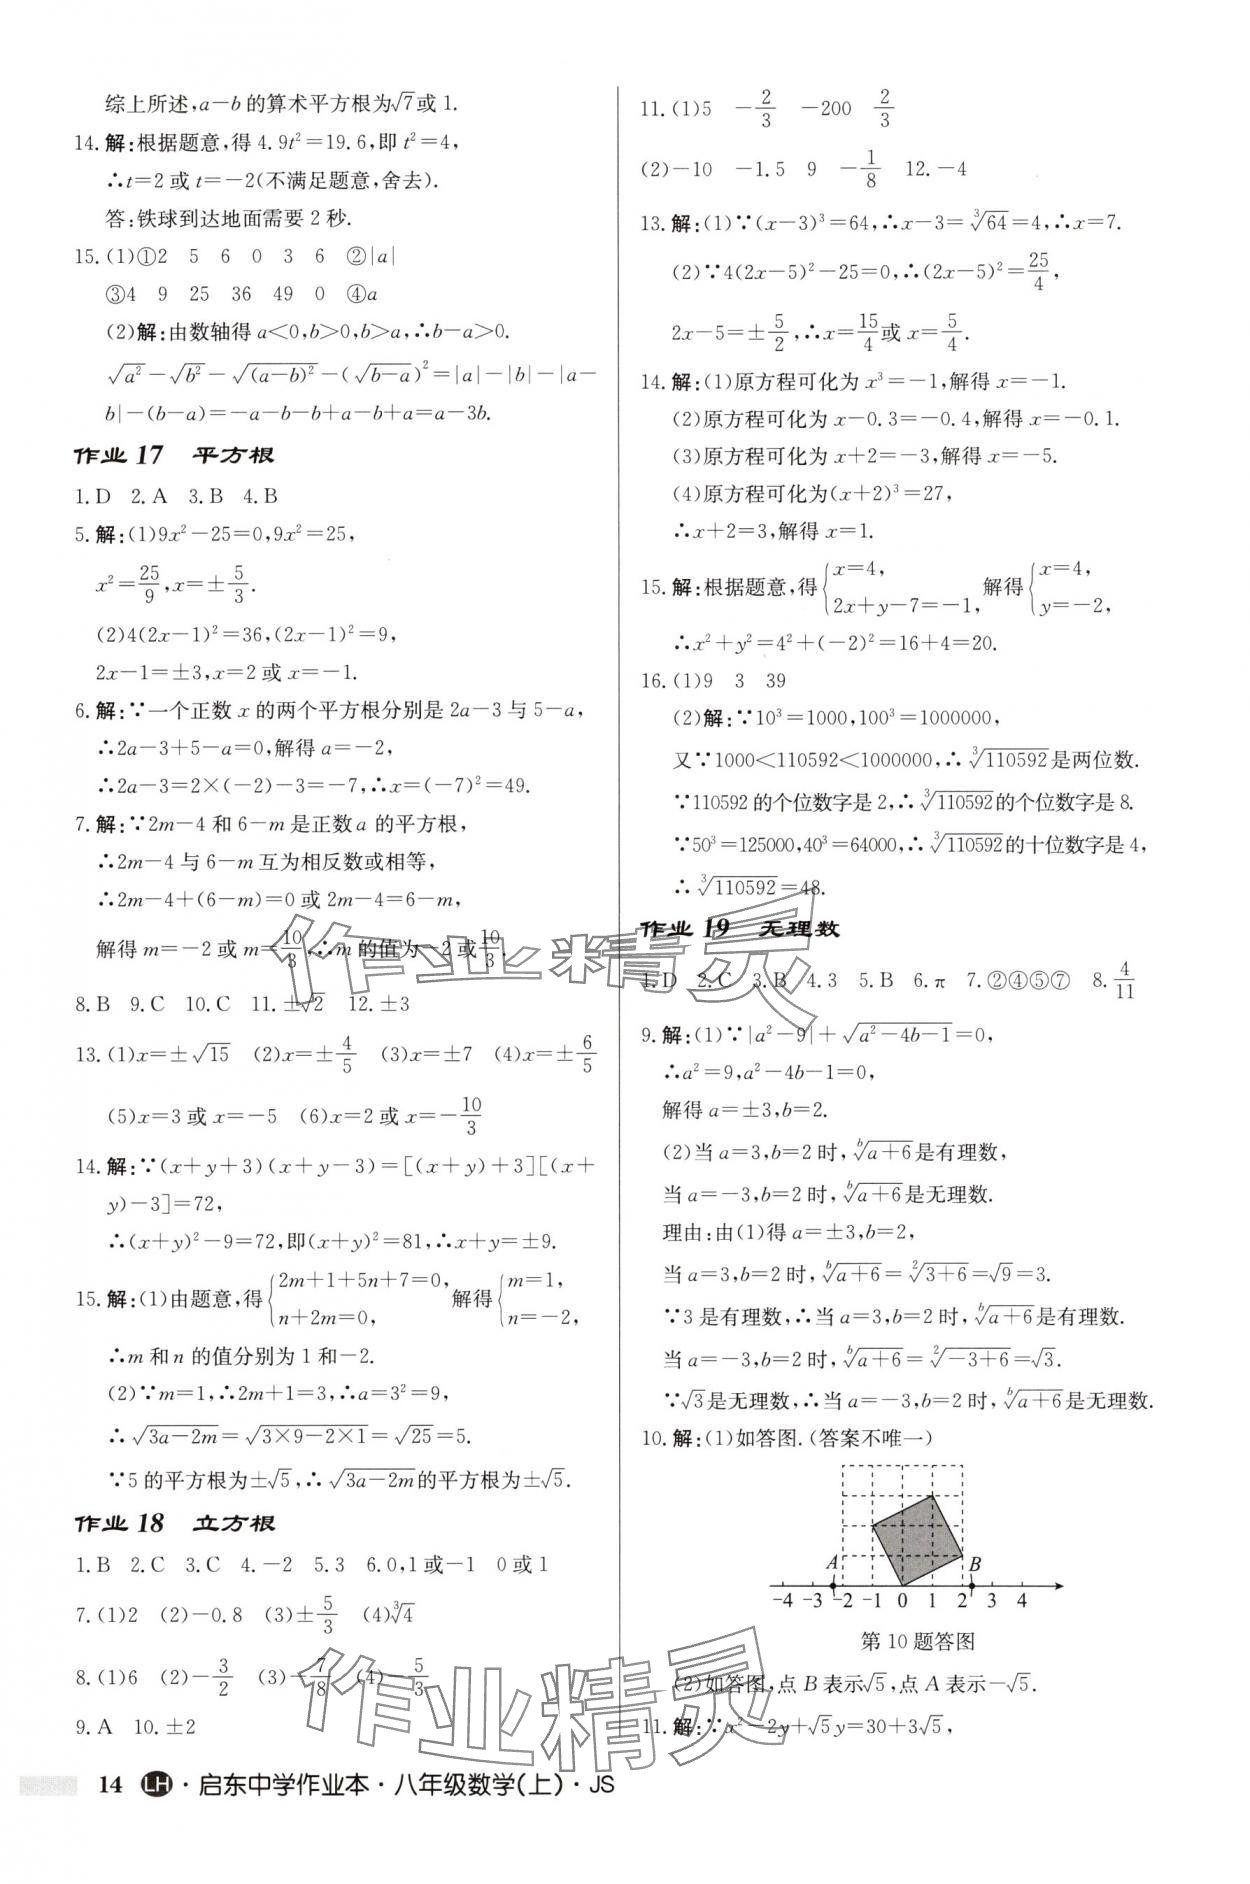 综上所述,a－b的算术平方根为√7或1.
14.解:根据题意,得4.9t²＝19.6,即t²＝4,
∴t＝2或t＝－2(不满足题意,舍去).
答:铁球到达地面需要2秒.
15.(1)①2 5 6 0 3 6 ②|a|
③4 9 25 36 49 0 ④a
(2)解:由数轴得a＜0,b＞0,b＞a,∴b－a＞0.
√(a²)－√(b²)－√((a－b)²)－(√(b－a))²＝|a|－|b|－|a－
b|－(b－a)＝－a－b－b＋a－b＋a＝a－3b.
作业17 平方根
1.D 2.A 3.B 4.B
5.解:(1)9x²－25＝0,9x²＝25,
x²＝25/9,x＝±5/3.
(2)4(2x－1)²＝36,(2x－1)²＝9,
2x－1＝±3,x＝2或x＝－1.
6.解:∵一个正数x的两个平方根分别是2a－3与5－a,
∴2a－3＋5－a＝0,解得a＝－2,
∴2a－3＝2×(－2)－3＝－7,∴x＝(－7)²＝49.
7.解:∵2m－4和6－m是正数a的平方根,
∴2m－4与6－m互为相反数或相等,
∴2m－4＋(6－m)＝0或2m－4＝6－m,
解得m＝－2或m＝10/3,∴m的值为－2或10/3.
8.B 9.C 10.C 11.±√2 12.±3
13.(1)x＝±√15 (2)x＝±4/5 (3)x＝±7 (4)x＝±6/5
(5)x＝3或x＝－5 (6)x＝2或x＝－10/3
14.解:∵(x＋y＋3)(x＋y－3)＝[(x＋y)＋3][(x＋
y)－3]＝72,
∴(x＋y)²－9＝72,即(x＋y)²＝81,∴x＋y＝±9.
15.解:(1)由题意,得{2m＋1＋5n＋7＝0, n＋2m＝0, 解得{m＝1, n＝－2,
∴m和n的值分别为1和－2.
(2)∵m＝1,∴2m＋1＝3,∴a＝3²＝9,
∴√(3a－2m)＝√(3×9－2×1)＝√25＝5.
∵5的平方根为±√5,∴√(3a－2m)的平方根为±√5.
作业18 立方根
1.B 2.C 3.C 4.－2 5.3 6.0,1或－1 0或1
7.(1)2 (2)－0.8 (3)±5/3 (4)∛4
8.(1)6 (2)－3/2 (3)－7/8 (4)－5/3
9.A 10.±2
14 LH·启东中学作业本·八年级数学(上)·JS
11.(1)5 －2/3 －200 2/3
(2)－10 －1.5 9 －1/8 12.－4
13.解:(1)∵(x－3)³＝64,∴x－3＝∛64＝4,∴x＝7.
(2)∵4(2x－5)²－25＝0,∴(2x－5)²＝25/4,
2x－5＝±5/2,∴x＝15/4或x＝5/4.
14.解:(1)原方程可化为x³＝－1,解得x＝－1.
(2)原方程可化为x－0.3＝－0.4,解得x＝－0.1.
(3)原方程可化为x＋2＝－3,解得x＝－5.
(4)原方程可化为(x＋2)³＝27,
∴x＋2＝3,解得x＝1.
15.解:根据题意,得{x＝4, 2x＋y－7＝－1, 解得{x＝4, y＝－2,
∴x²＋y²＝4²＋(－2)²＝16＋4＝20.
16.(1)9 3 39
(2)解:∵10³＝1000,100³＝1000000,
又∵1000＜110592＜1000000,∴∛110592是两位数.
∵110592的个位数字是2,∴∛110592的个位数字是8.
∵50³＝125000,40³＝64000,∴∛110592的十位数字是4,
∴∛110592＝48.
作业19 无理数
1.D 2.C 3.B 4.3 5.B 6.π 7.②④⑤⑦ 8.4/11
9.解:(1)∵|a²－9|＋√(a²－4b－1)＝0,
∴a²＝9,a²－4b－1＝0,
解得a＝±3,b＝2.
(2)当a＝3,b＝2时,ᵇ√(a＋6)是有理数,
当a＝－3,b＝2时,ᵇ√(a＋6)是无理数.
理由:由(1)得a＝±3,b＝2,
当a＝3,b＝2时,ᵇ√(a＋6)＝²√(3＋6)＝√9＝3.
∵3是有理数,∴当a＝3,b＝2时,ᵇ√(a＋6)是有理数.
当a＝－3,b＝2时,ᵇ√(a＋6)＝²√(－3＋6)＝√3.
∵√3是无理数,∴当a＝－3,b＝2时,ᵇ√(a＋6)是无理数.
10.解:(1)如答图.(答案不唯一)
A B
-4 -3 -2 -1 0 1 2 3 4
第10题答图
(2)如答图,点B表示√5,点A表示－√5.
11.解:∵x²－2y＋√5y＝30＋3√5,
作业精灵
作业精灵